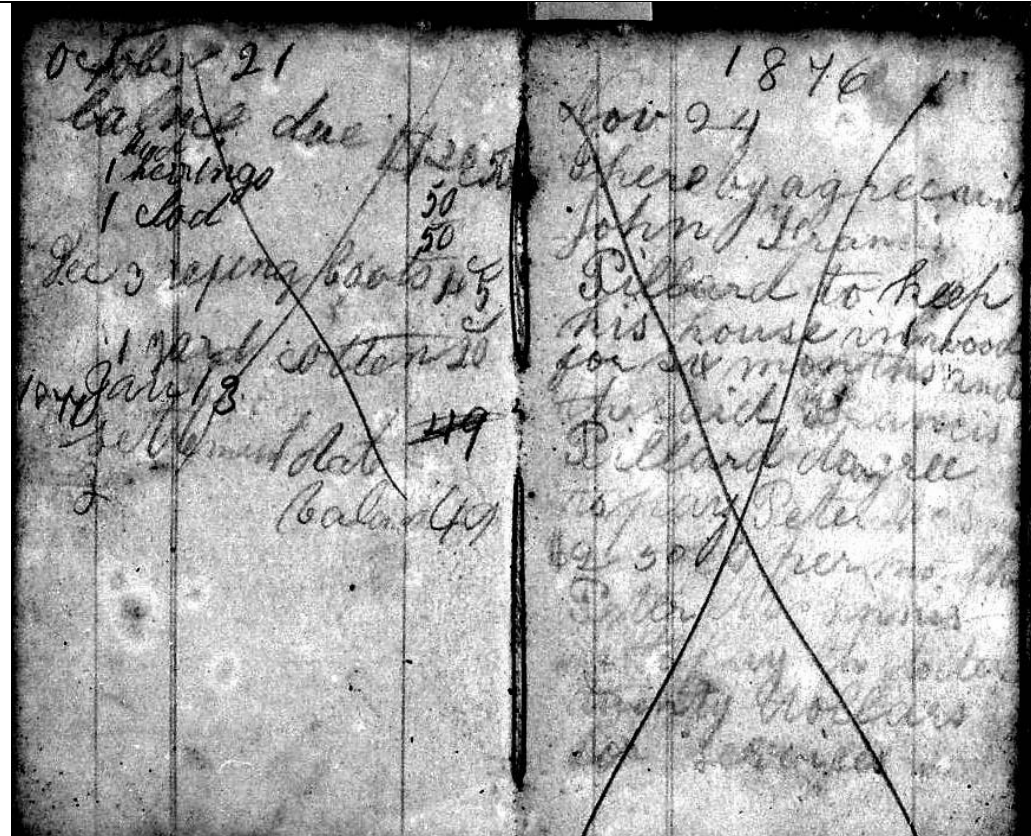 October 21
balance due
had
1 herrings
1 clod
50
50
Dec 3 roping boots 45
5
1 yard cotten 50
Jany 13
Settlement
49
balan 49
1876
Nov 24
I hereby agree with
John Francis
Pillard to keep
his house in wood
for six months and
the said Francis
Pillard do agree
to pay Peter
per mo
Peter
pay
twenty Dollars
for services